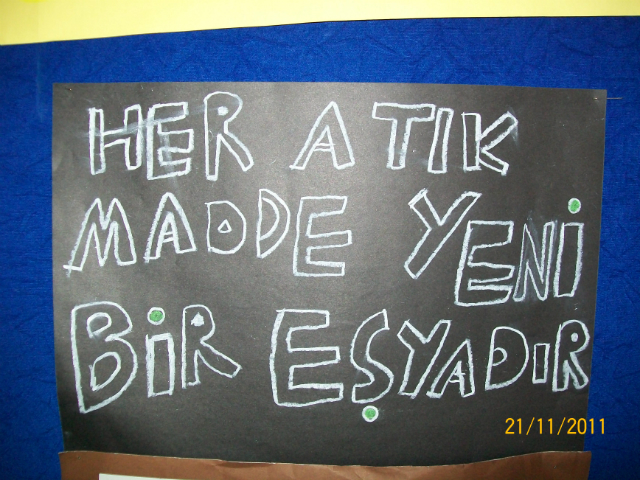 HER ATIK
MADDE YENİ
BİR EŞYADIR
21/11/2011